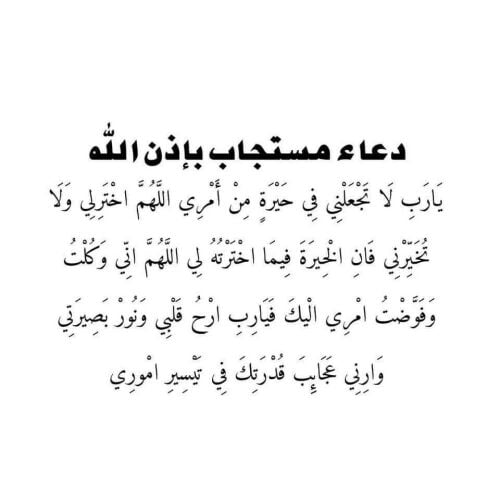 دعاء مستجاب بإذن الله
يَارَبِ لَا تَجْعَلْنِي فِي حَيْرَةٍ مِنْ أَمْرِي اللَّهُمَّ اخْتَرلِي وَلَا
تُخَيِّرْنِي فَانِ الْخِيرَةَ فِيمَا اخْتَرْتُهُ لِي اللَّهُمَّ انِّي وَكُلْتُ
وَفَوَّضْتُ امْرِي الْيكَ فَيَارِبِ ارْحُ قَلْبِي وَنُورْ بَصِيرَتِي
وَارِنِي عَجَايِبَ قُدْرَتِكَ فِي تَيْسِيرِ امْورِي